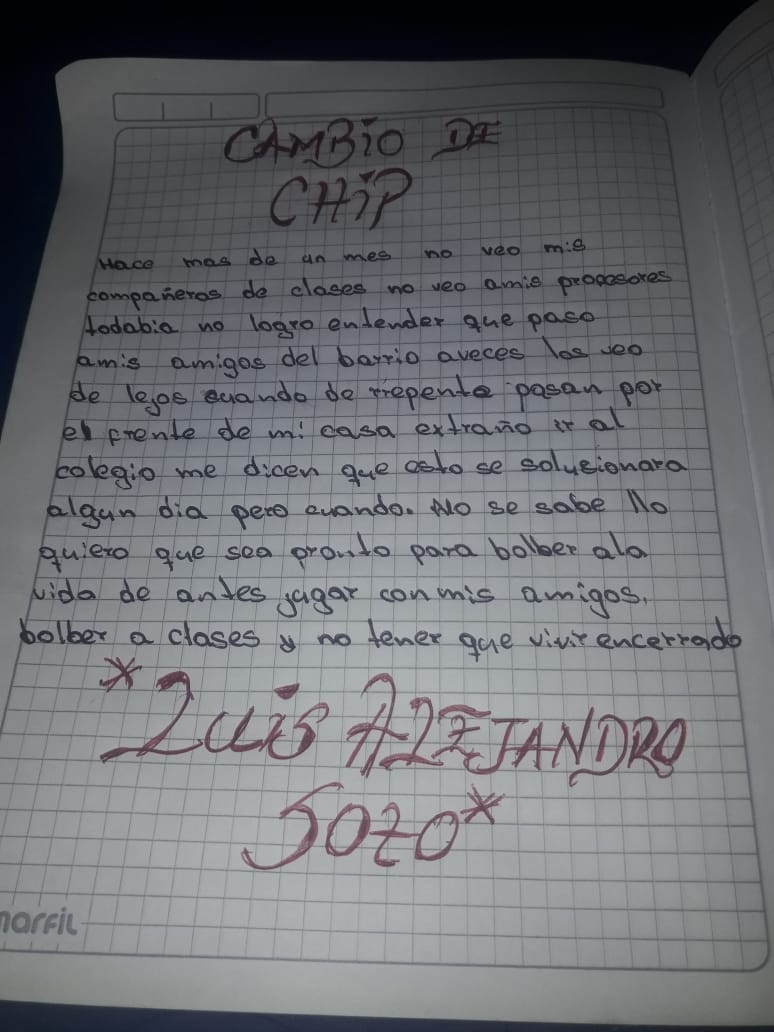 CAMBIO DE
CHIP
Hace mas de un mes no veo mis
compañeros de clases no veo amis propesores
todabia no logro entender que paso
amis amigos del barrio aveces los veo
de lejos cuando de rrepente pasan por
el frente de mi casa extraño ir al
colegio me dicen que esto se solucionara
algun dia pero cuando. No se sabe Yo
quiero que sea pronto para bolber ala
vida de antes jugar con mis amigos,
bolber a clases y no tener que vivir encerrado
*Luis ALEJANDRO
Soto*
marfil